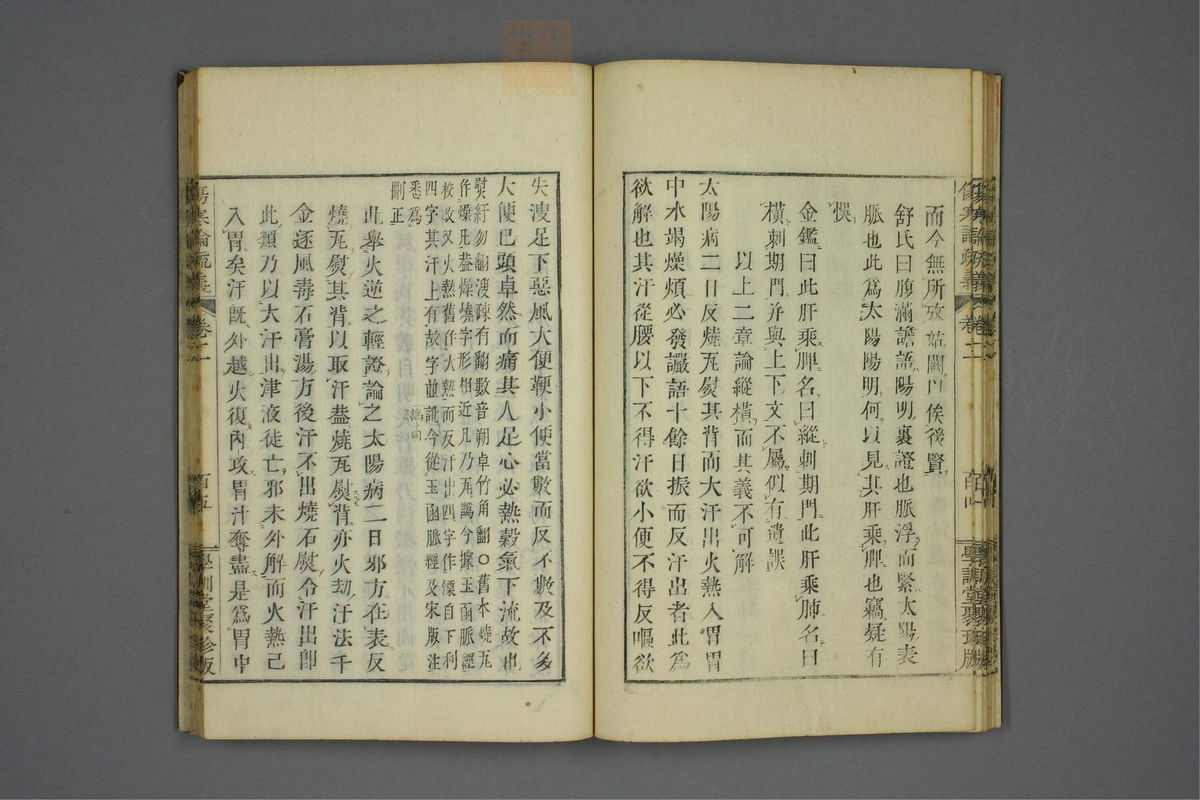 而今無所攷姑闕門俟後賢
舒氏曰腹滿譫語陽明裏證也脈浮而緊太陽表
脈也此爲太陽陽明何以見其肝乘脾也竊疑有
悞
金鑑曰此肝乘脾名曰縱刺期門此肝乘肺名曰
橫刺期門并與上下文不屬似有遺誤
以上二章論縱橫而其義不可解
太陽病二日反燒瓦熨其背而大汗出火熱入胃胃
中水竭燥煩必發讝語十餘日振而反汗出者此爲
欲解也其汗從腰以下不得汗欲小便不得反嘔欲
傷寒論疏義
卷二
百四
學訓堂聚珍版
失溲足下惡風大便鞕小便當數而反不數及不多
大便已頭卓然而痛其人足心必熱穀氣下流故也
熨紆勿翻溲疎有翻數音朔卓竹角翻○舊本燒瓦
作燥凡葢燥燒字形相近凡乃瓦譌今據玉函脈經
校改又火熱舊作大熱而反汗出四字作慄自下利
四字其汗上有故字並譌今從玉函脈經及宋版注
悉爲
刪正
此舉火逆之輕證論之太陽病二日邪方在表反
燒瓦熨其背以取汗葢燒瓦熨背亦火劫汗法千
金逐風毒石膏湯方後汗不出燒石熨令汗出卽
此類乃以大汗出津液徒亡邪未外解而火熱已
入胃矣汗既外越火復內攻胃汁奪盡是爲胃中
傷寒論疏義
卷二
百五
學訓堂聚珍版